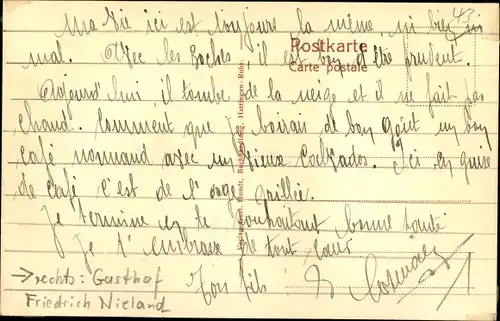 43
Ma Vie ici est toujours la même, ni bien ni
mal. Avec les Boches il est bon d'être prudent.
Postkarte
Carte postale
Aujourd'hui il tombe de la neige et il ne fait pas
chaud. Comment que je boirais de bon goût un bon
café normand avec un vieux Calvados. Ici en guise
de café c'est de l'orge grillée.
Je termine en te souhaitant bonne santé
Je t'embrasse de tout cœur
Ton fils
→ rechts: Gasthof
Friedrich Nieland
Hattingen-Ruhr.